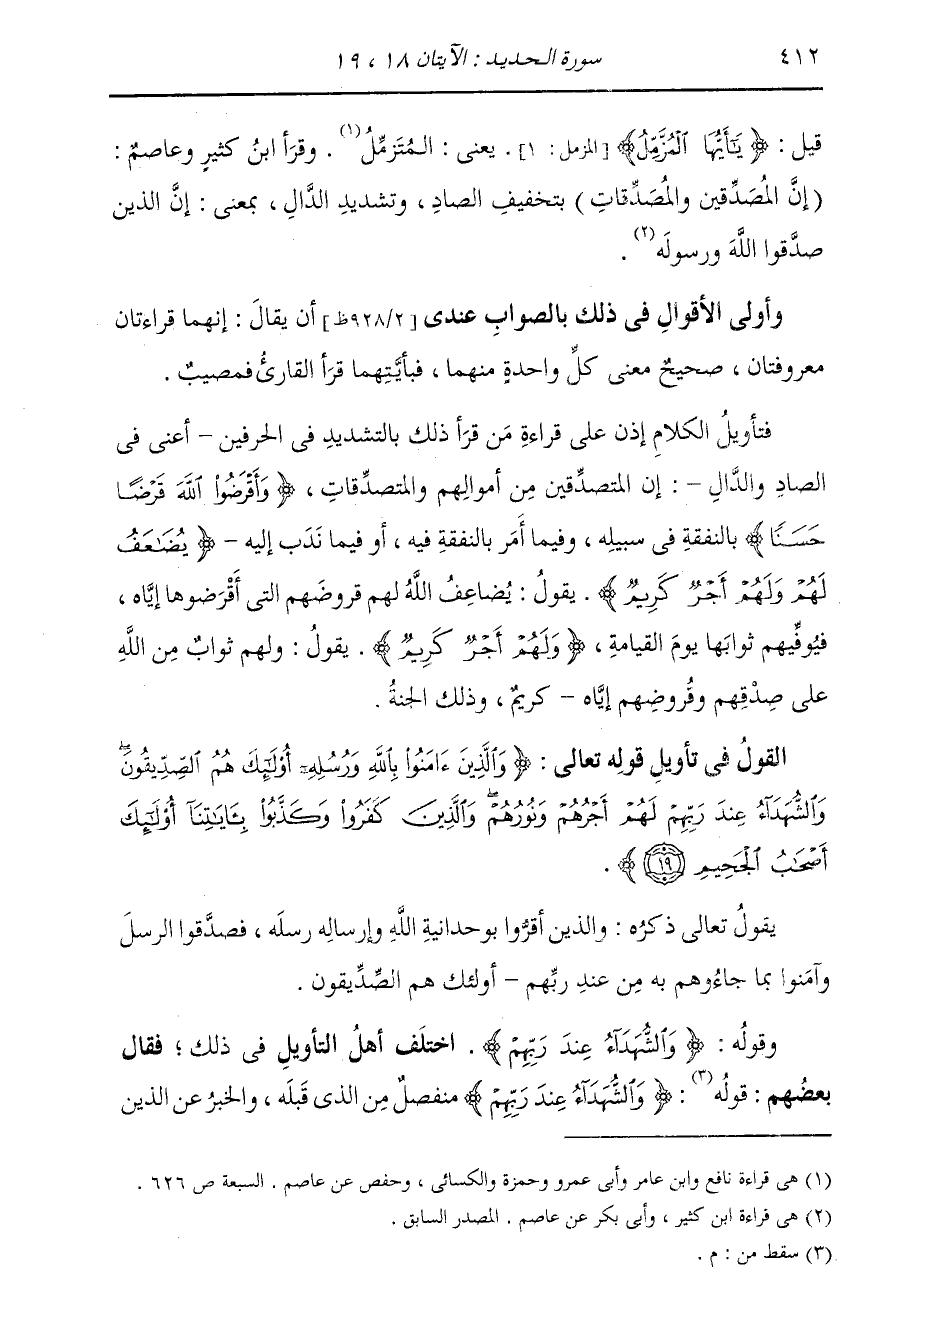 ٤١٢ سورة الحديد : الآيتان ١٨ ، ١٩
قيل : ﴿ يَٰٓأَيُّهَا ٱلْمُزَّمِّلُ ﴾ [المزمل : ١] . يعنى : المُتَزمِّلُ(١) . وقرَأ ابنُ كثيرٍ وعاصمٌ :
( إنَّ المُصَدِّقين والمُصَدِّقاتِ ) بتخفيفِ الصادِ ، وتشديدِ الدَّالِ ، بمعنى : إنَّ الذين
صدَّقوا اللَّهَ ورسولَه(٢) .
وأولى الأقوالِ فى ذلك بالصوابِ عندى [٩٢٨/٢ظ] أن يقالَ : إنهما قراءتان
معروفتان ، صحيحٌ معنى كلِّ واحدةٍ منهما ، فبأيَّتِهما قرَأ القارئُ فمصيبٌ .
فتأويلُ الكلامِ إذن على قراءةِ مَن قرَأ ذلك بالتشديدِ فى الحرفين – أعنى فى
الصادِ والدَّالِ – : إن المتصدِّقين مِن أموالِهم والمتصدِّقاتِ ، ﴿ وَأَقْرَضُوا۟ ٱللَّهَ قَرْضًا
حَسَنًا ﴾ بالنفقةِ فى سبيلِه ، وفيما أمَر بالنفقةِ فيه ، أو فيما نَدَب إليه – ﴿ يُضَٰعَفُ
لَهُمْ وَلَهُمْ أَجْرٌ كَرِيمٌ ﴾ . يقولُ : يُضاعِفُ اللَّهُ لهم قروضَهم التى أَقْرَضوها إيَّاه ،
فيُوفِّيهم ثوابَها يومَ القيامةِ ، ﴿ وَلَهُمْ أَجْرٌ كَرِيمٌ ﴾ . يقولُ : ولهم ثوابٌ مِن اللَّهِ
على صِدْقِهم وقُروضِهم إيَّاه – كريمٌ ، وذلك الجنةُ .
القولُ فى تأويلِ قولِه تعالى : ﴿ وَٱلَّذِينَ ءَامَنُوا۟ بِٱللَّهِ وَرُسُلِهِۦٓ أُو۟لَٰٓئِكَ هُمُ ٱلصِّدِّيقُونَ ۖ
وَٱلشُّهَدَآءُ عِندَ رَبِّهِمْ لَهُمْ أَجْرُهُمْ وَنُورُهُمْ ۖ وَٱلَّذِينَ كَفَرُوا۟ وَكَذَّبُوا۟ بِـَٔايَٰتِنَآ أُو۟لَٰٓئِكَ
أَصْحَٰبُ ٱلْجَحِيمِ ١٩ ﴾ .
يقولُ تعالى ذكرُه : والذين أقرُّوا بوحدانيةِ اللَّهِ وإرسالِه رسلَه ، فصدَّقوا الرسلَ
وآمَنوا بما جاءُوهم به مِن عندِ ربِّهم – أولئك هم الصِّدِّيقون .
وقولُه : ﴿ وَٱلشُّهَدَآءُ عِندَ رَبِّهِمْ ﴾ . اختلَف أهلُ التأويلِ فى ذلك ؛ فقال
بعضُهم : قولُه(٣) : ﴿ وَٱلشُّهَدَآءُ عِندَ رَبِّهِمْ ﴾ منفصلٌ مِن الذى قَبلَه ، والخبرُ عن الذين
(١) هى قراءة نافع وابن عامر وأبى عمرو وحمزة والكسائى ، وحفص عن عاصم . السبعة ص ٦٢٦ .
(٢) هى قراءة ابن كثير ، وأبى بكر عن عاصم . المصدر السابق .
(٣) سقط من : م .